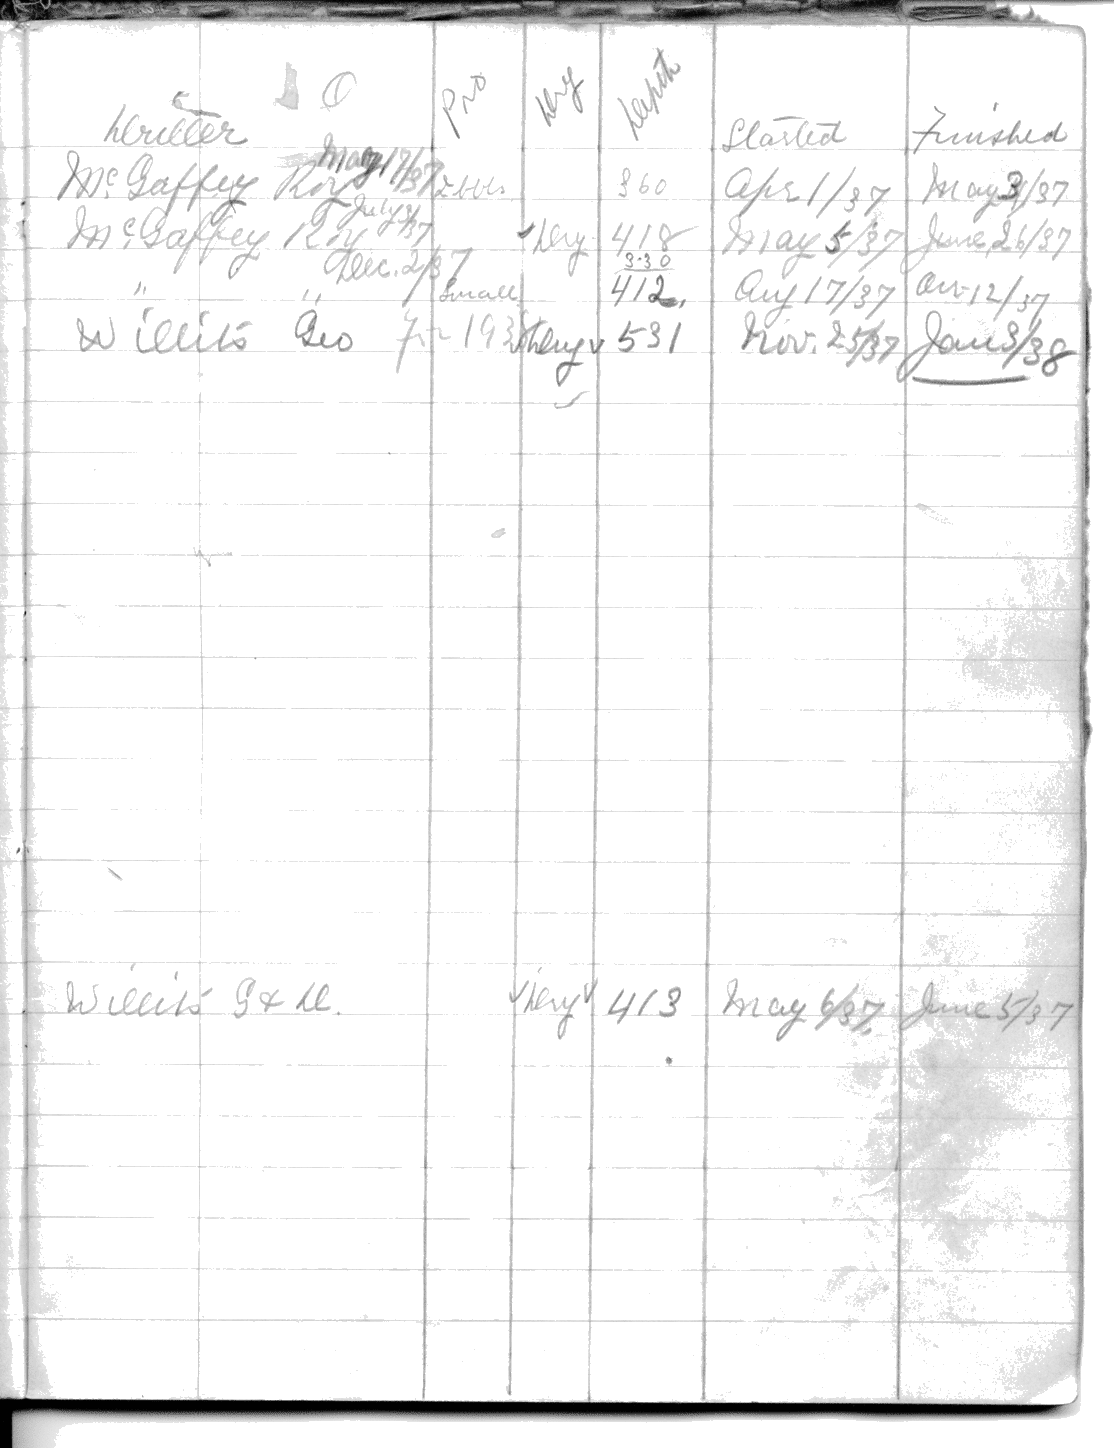 Driller Pro Dry Depth Started Finished
May 17/37
McGaffey Roy 2 bbls. 360 Apr 1/37 May 3/37
July 3/37
McGaffey Roy Dry 418 May 5/37 June 26/37
Dec. 2/37 330
" " Small 412 Aug 17/37 12/37
Willits Geo Dry 531 Nov. 25/37 Jan 3/38
Willits G & D. Dry 413 May 6/37 June 5/37